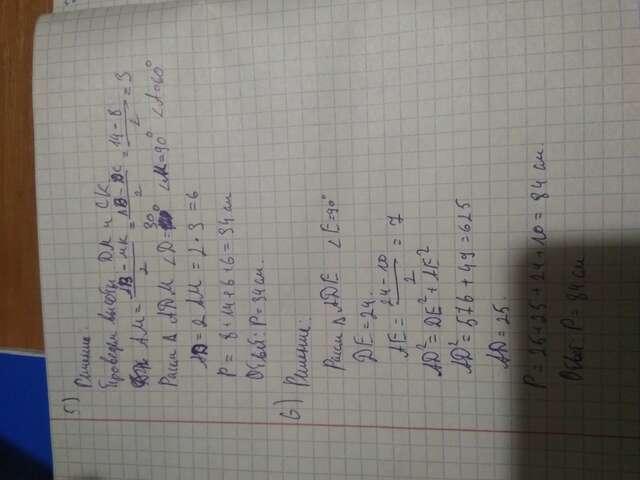 5) Решение:
Проведём высоты DM и CK
AM = AB - MK / 2 = AB - DC / 2 = 14 - 8 / 2 = 3
Рассм Δ ADM ∠D = 30° ∠M = 90° ∠A = 60°
AD = 2 AM = 2 · 3 = 6
P = 8 + 14 + 6 + 6 = 34 см
Ответ: P = 34 см.
6) Решение:
Рассм Δ ADE ∠E = 90°
DE = 24.
AE = 24 - 10 / 2 = 7
AD² = DE² + AE²
AD² = 576 + 49 = 625
AD = 25.
P = 25 + 25 + 24 + 10 = 84 см.
Ответ: P = 84 см